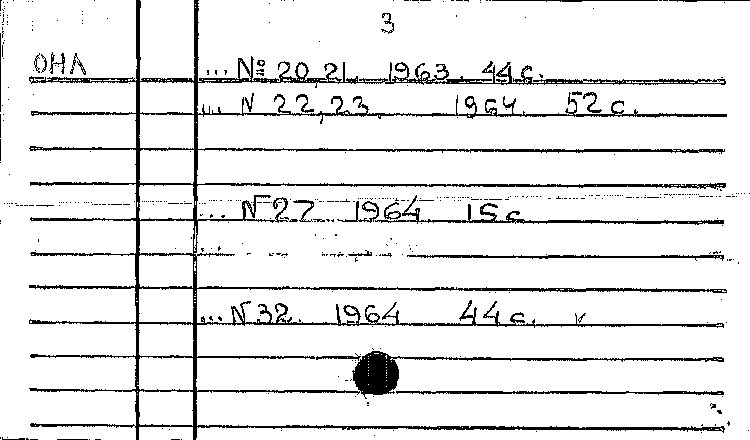 3
ОНЛ ... № 20,21. 1963. 44 с.
... N 22,23. 1964. 52 с.
... N 27 1964 15 с
... N 32. 1964 44 с. v